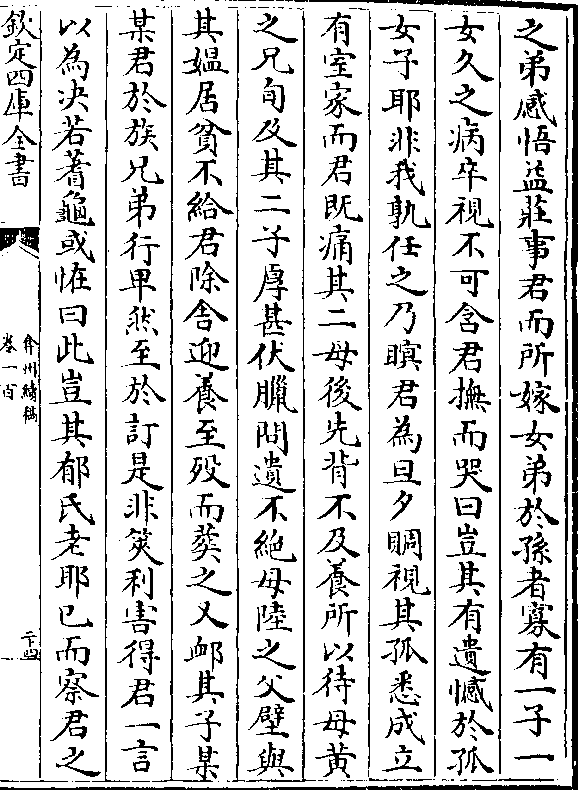 之弟感悟益莊事君而所嫁女弟於孫者寡有一子一
女久之病卒視不可含君撫而哭曰豈其有遺憾於孤
女子耶非我孰任之乃瞑君為旦夕賙視其孤悉成立
有室家而君既痛其二母後先背不及養所以待母黄
之兄旬及其二子厚甚伏臘問遺不絶母陸之父壁與
其媼居貧不給君除舍迎養至殁而葬之又䘏其子某
某君於族兄弟行卑然至於訂是非筴利害得君一言
以為决若蓍龜或恠曰此豈其郁氏老耶已而察君之
欽定四庫全書
弇州續稿
卷一百
二十四